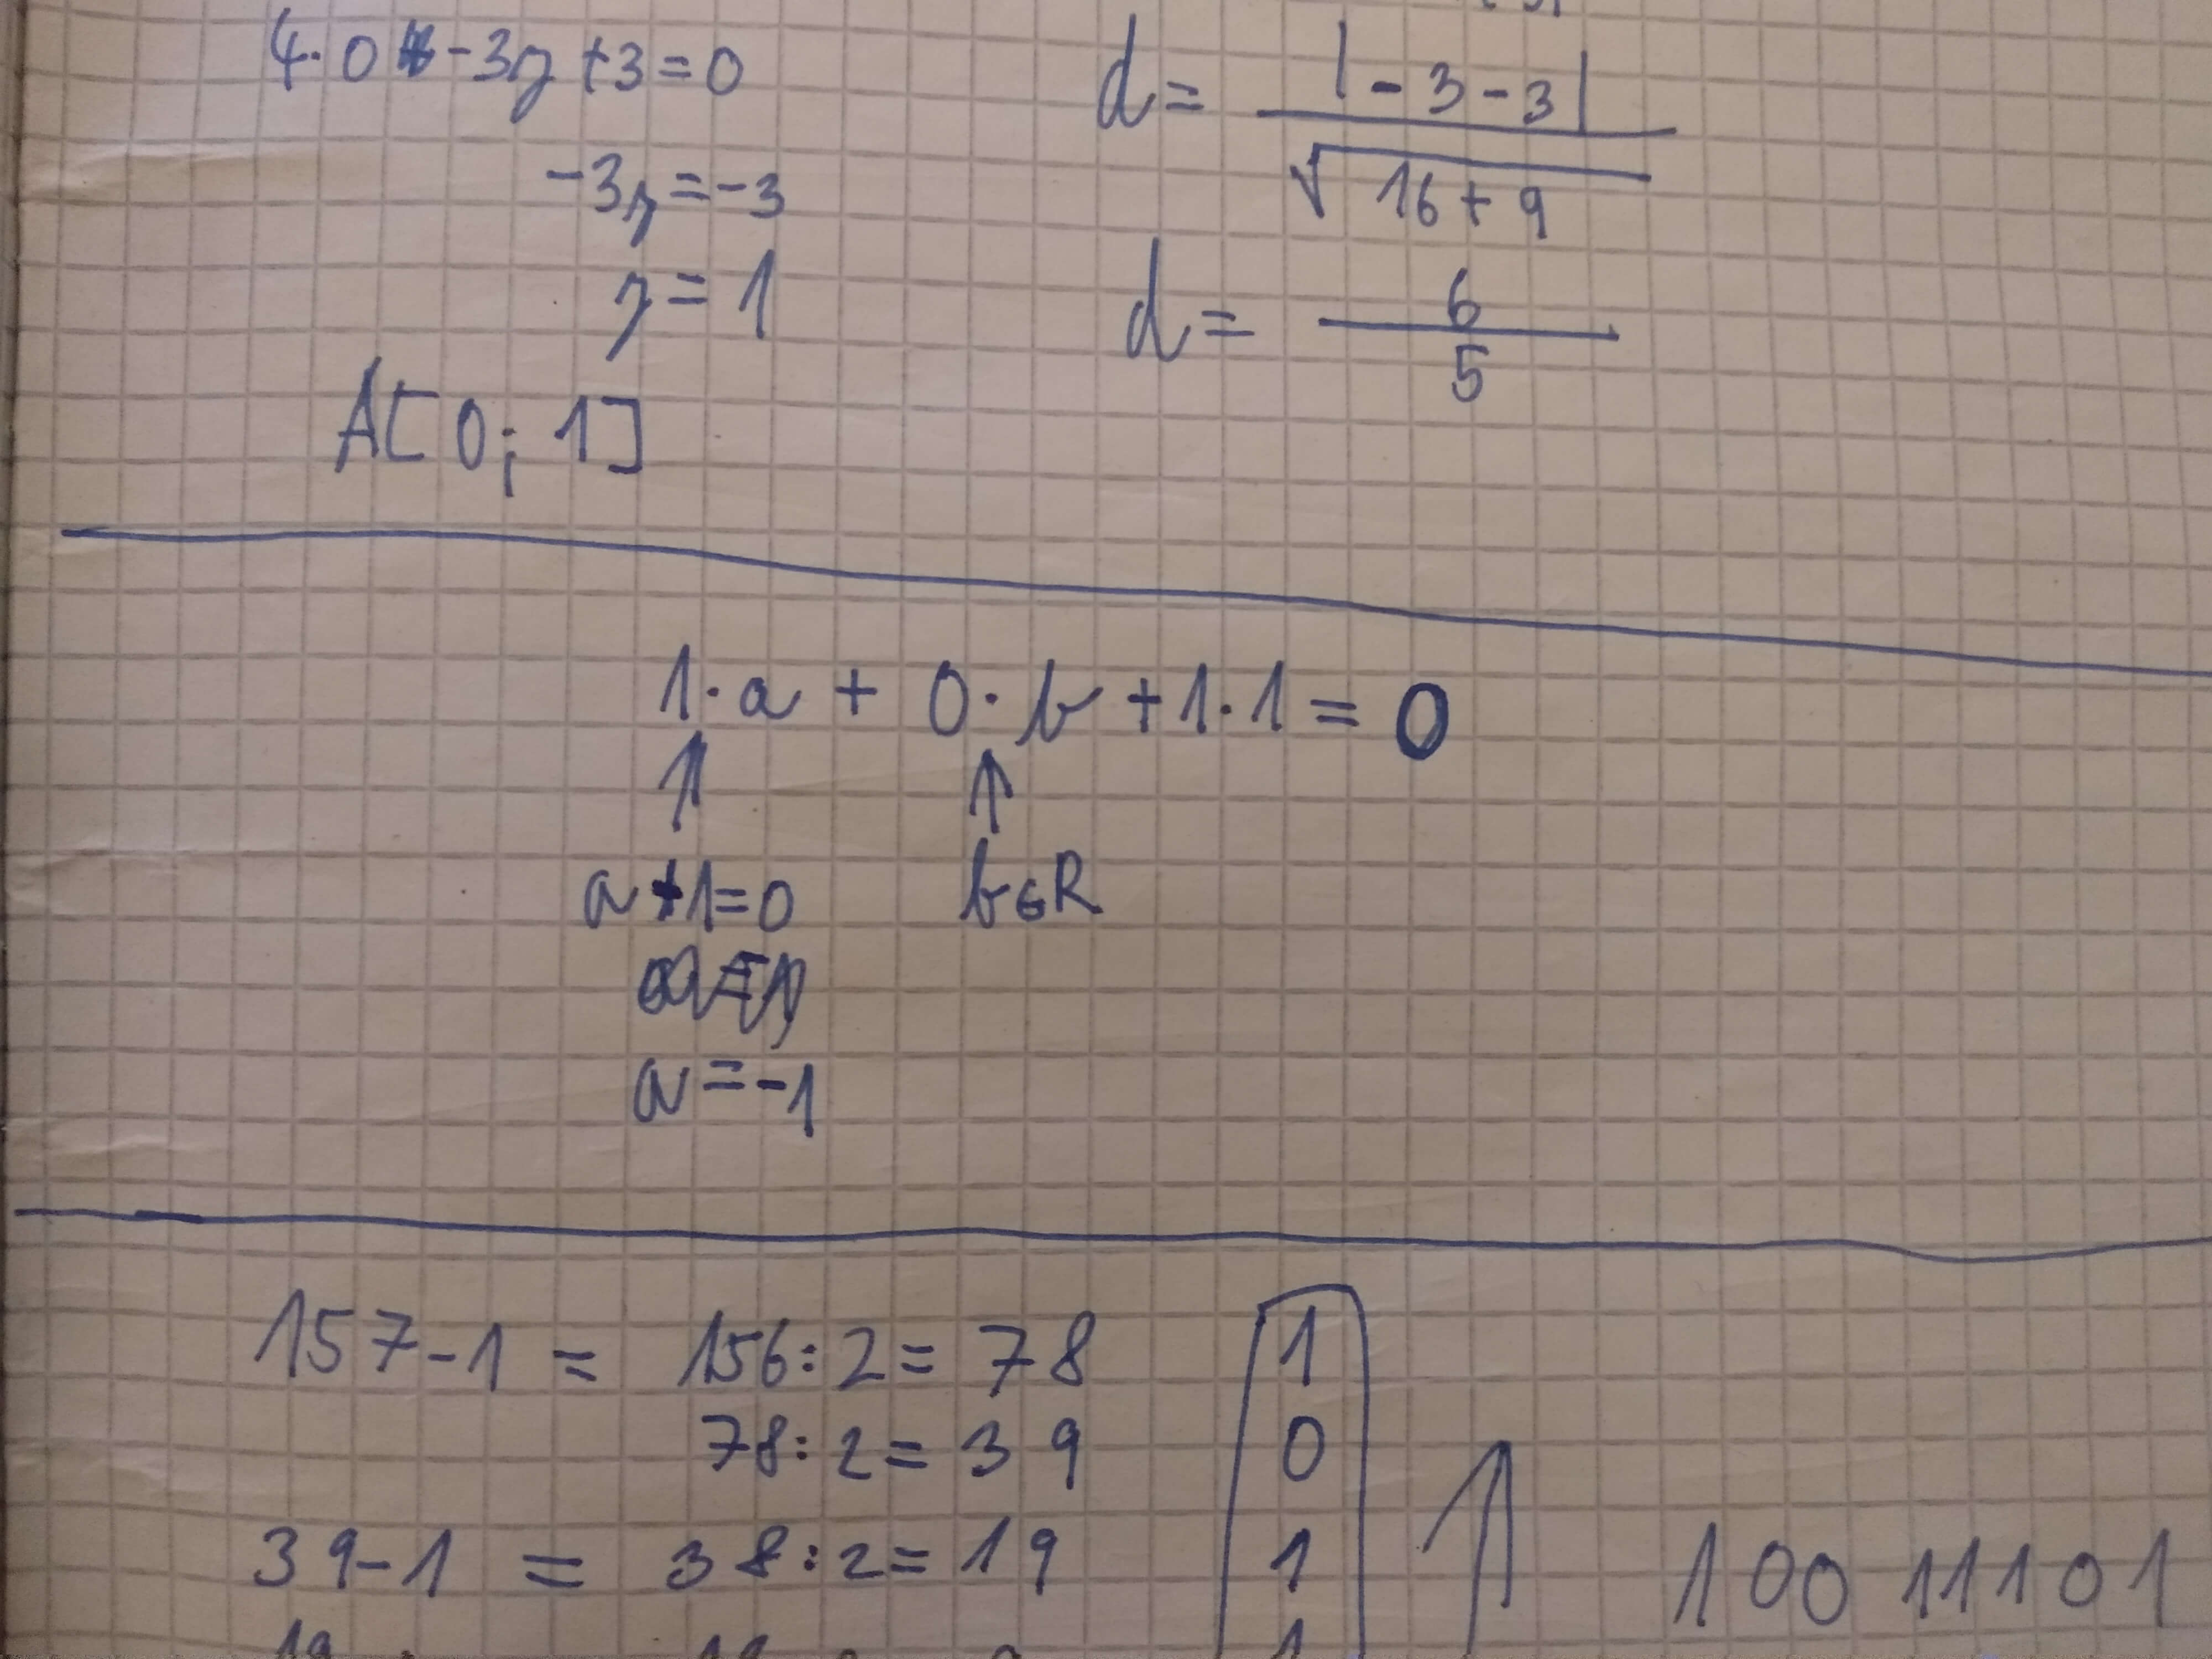 4·0 -3y +3=0
-3y=-3
y=1
A[0; 1]
d= |-3-3| / √16+9
d= 6/5
1·a + 0·b +1·1= 0
↑ ↑
a+1=0 b∈R
a=-1
157-1 = 156:2= 78 1
78:2= 39 0
39-1 = 38:2=19 1
↑ 10011101
19 1